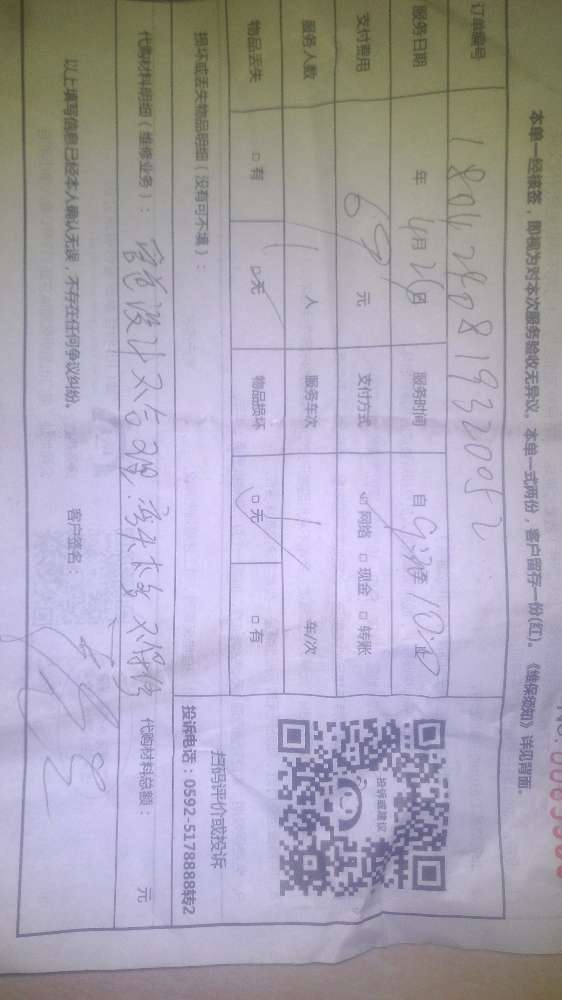 本单一经核签，即视为对本次服务验收无异议。本单一式两份，客户留存一份(红)。《维保须知》详见背面。
订单编号
服务日期 年 4月 26日 服务时间 自
支付费用 69 元 支付方式 ☑网络 □现金 □转账
服务人数 1 人 服务车次 1 车/次
物品丢失 □有 ☑无 物品损坏 ☑无 □有
损坏或丢失物品明细（没有可不填）：
代购材料明细（维修业务）： 管道设计不合理，弯头太多，不保修 代购材料总额： 元
以上填写信息已经本人确认无误，不存在任何争议纠纷。 客户签名：
投诉或建议
扫码评价或投诉
投诉电话：0592-5178888转2